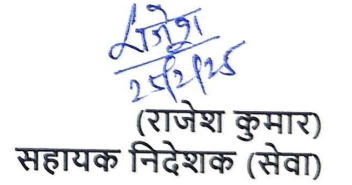 राजेश
25/2/25
(राजेश कुमार)
सहायक निदेशक (सेवा)